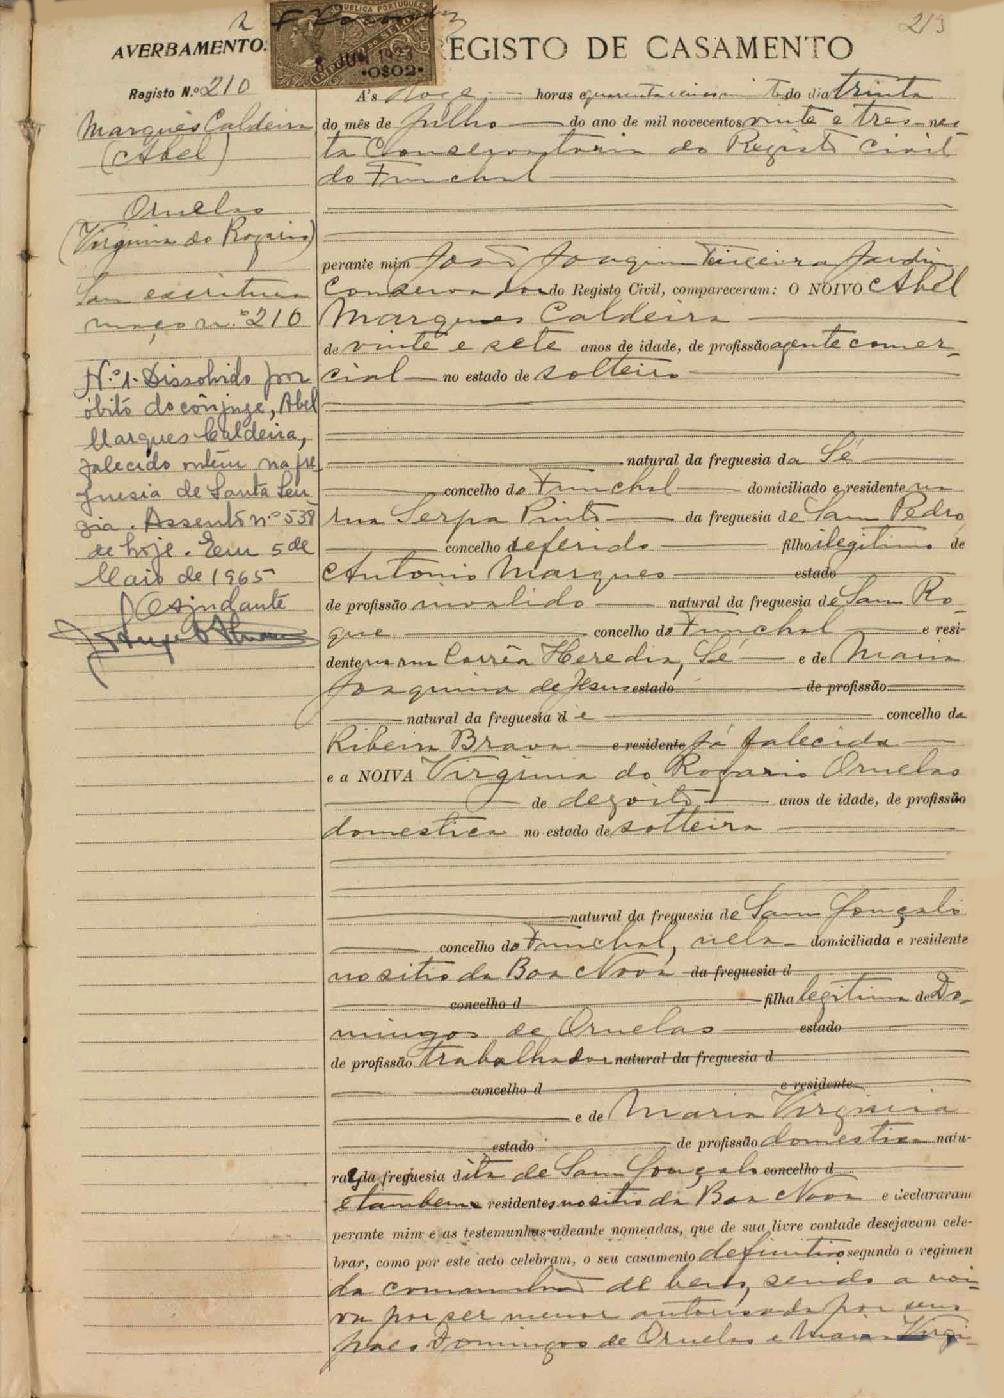 213
AVERBAMENTO.
Registo N.º 210
Marques Caldeira
(Abel)
Ornelas
(Virginia do Rozario)
Sem escritura
maço n.º 210
N.º 1. Dissolvido por
óbito do cônjuge, Abel
Marques Caldeira,
falecido ontem na fre
guesia de Santa Lu
zia. Assento n.º 538
de hoje. Em 5 de
Maio de 1965
O Ajudante
REPUBLICA PORTUGUESA
8 JUN 1923
0$02
REGISTO DE CASAMENTO
A's doze horas e quarenta e cinco do dia trinta
do mês de Julho do ano de mil novecentos vinte e tres nes
ta Conservatoria do Registo Civil
do Funchal
perante mim João Joaquim Teixeira Jardim
Conservador do Registo Civil, compareceram: O NOIVO Abel
Marques Caldeira
de vinte e sete anos de idade, de profissão agente comer-
cial no estado de solteiro
natural da freguesia da Sé
concelho do Funchal domiciliado e residente na
rua Serpa Pinto da freguesia de Sam Pedro
concelho referido filho ilegitimo de
Antonio Marques estado
de profissão invalido natural da freguesia de Sam Ro-
que concelho do Funchal e resi-
dente na rua Corrêa Heredia, Sé e de Maria
Joaquina de Jesus estado de profissão
natural da freguesia de concelho da
Ribeira Brava e residente já falecida
e a NOIVA Virginia do Rozario Ornelas
de dezoito anos de idade, de profissão
domestica no estado de solteira
natural da freguesia de Sam Gonçalo
concelho do Funchal, nela domiciliada e residente
no sitio da Boa Nova da freguesia d
concelho d filha legitima de Do-
mingos de Ornelas estado
de profissão trabalhador natural da freguesia d
concelho d e residente
e de Maria Virginia
estado de profissão domestica natu-
raes da freguesia dita de Sam Gonçalo concelho d
e tambem residentes no sitio da Boa Nova e declararam
perante mim e as testemunhas adeante nomeadas, que de sua livre vontade desejavam cele-
brar, como por este acto celebram, o seu casamento definitivo segundo o regimen
da comunhão de bens, sendo a noi-
va por ser menor autorisada por seus
paes Domingos de Ornelas e Maria Virgi-